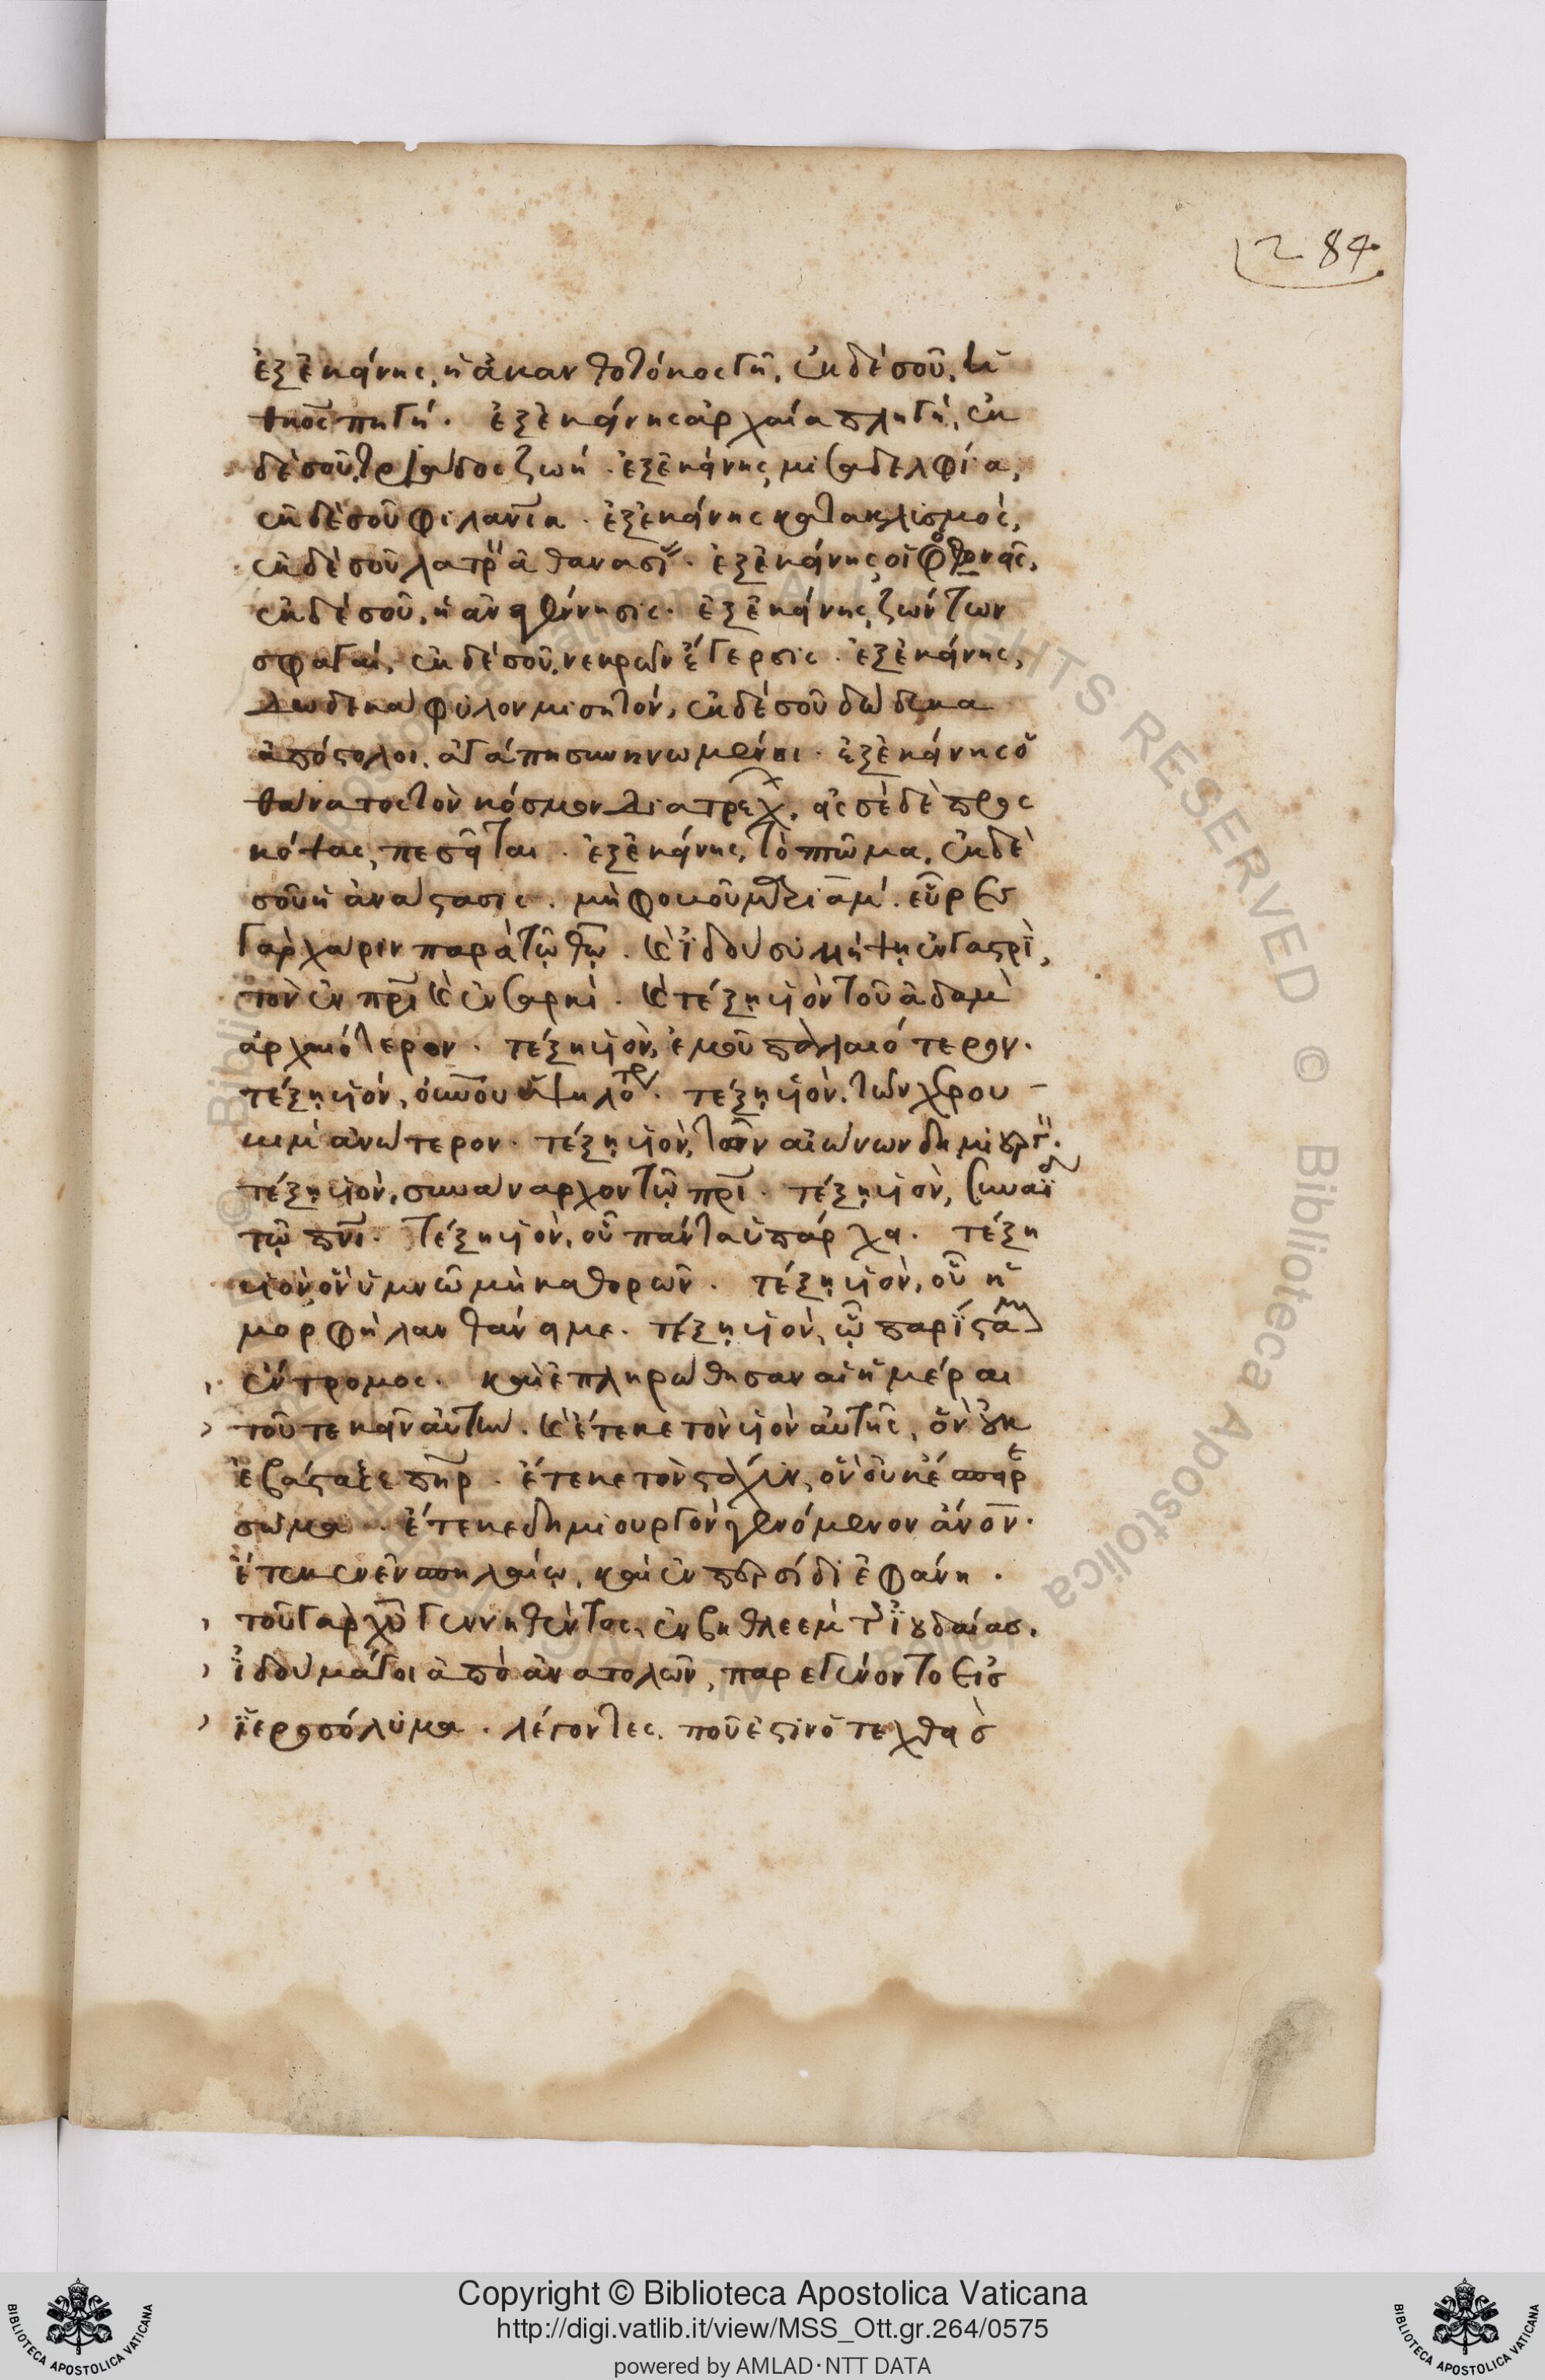 284
ἐξ ἐκείνης, ἡ ἀκανθοτόκος γῆ, ἐκ δὲ σοῦ, ἡ
πηγή. ἐξ ἐκείνης ἀρχαία πληγή, ἐκ
δὲ σοῦ, ζωή. ἐξ ἐκείνης, μισαδελφία,
ἐκ δὲ σοῦ φιλανία. ἐξ ἐκείνης κατακλισμός,
ἐκ δὲ σοῦ ἀθανασι. ἐξ ἐκείνης, οἱ
ἐκ δὲ σοῦ, ἡ ἀναγέννησις. ἐξ ἐκείνης, ζώντων
σφαγαί, ἐκ δὲ σοῦ, νεκρῶν ἔγερσις. ἐξ ἐκείνης,
δωδεκάφυλον μισητόν, ἐκ δὲ σοῦ δώδεκα
ἀπόστολοι, ἀγάπη συνηνωμένοι. ἐξ ἐκείνης ὁ
θάνατος τὸν κόσμον διατρεχ, εἰς σὲ δὲ προσ
κόψας, πεσεῖται. ἐξ ἐκείνης, τὸ πτῶμα, ἐκ δὲ
σοῦ ἡ ἀνάστασις. μὴ φοβοῦ μαριάμ. εὗρες
γὰρ χάριν παρὰ τῷ θῶ. καὶ ἰδοὺ συλλήψῃ ἐν γαστρὶ,
τὸν ἐν πρι καὶ ἐν σαρκὶ. καὶ τέξῃ υἱὸν τοῦ ἀδὰμ
ἀρχαιότερον. τέξῃ υἱὸν, ἐμοῦ παλαιότερον.
τέξῃ υἱόν, οὐνου ὑψηλοτρ. τέξῃ υἱὸν, τῶν χερου
βιμ ἀνώτερον. τέξῃ υἱὸν, τὸν αἰώνων δημιουργ.
τέξῃ υἱὸν, συνάναρχον τῷ πρι. τέξῃ υἱὸν, συναΐδ
τῷ πνι. τέξῃ υἱὸν, οὗ πάντα ὑπάρχει. τέξῃ
υἱὸν ὃν ὑμνῶ μὴ καθορῶν. τέξῃ υἱὸν, οὗ ἡ
μορφὴ λανθάνει με. τέξῃ υἱὸν, ᾧ παρίσταμαι
ἔντρομος. καὶ ἐπληρώθησαν αἱ ἡμέραι
τοῦ τεκεῖν αὐτήν. καὶ ἔτεκε τὸν υἱὸν αὐτῆς, ὃν οὐκ
ἔσπειρε
σῶμα. ἔτεκε δημιουργὸν γενόμενον ἀνον.
ἔτεκεν ἐν σπηλαίῳ, καὶ ἐν περσίδι ἐφάνη.
τοῦ γὰρ χυ γεννηθέντος, ἐν βηθλεὲμ τῆς ἰουδαίας,
ἰδοὺ μάγοι ἀπὸ ἀνατολῶν, παρεγένοντο εἰς
ἱεροσόλυμα. λέγοντες, ποῦ ἐστιν ὁ τεχθεὶς
© Biblioteca Apostolica Vaticana
ALL RIGHTS RESERVED
Copyright © Biblioteca Apostolica Vaticana
http://digi.vatlib.it/view/MSS_Ott.gr.264/0575
powered by AMLAD·NTT DATA
BIBLIOTECA APOSTOLICA VATICANA
BIBLIOTECA APOSTOLICA VATICANA